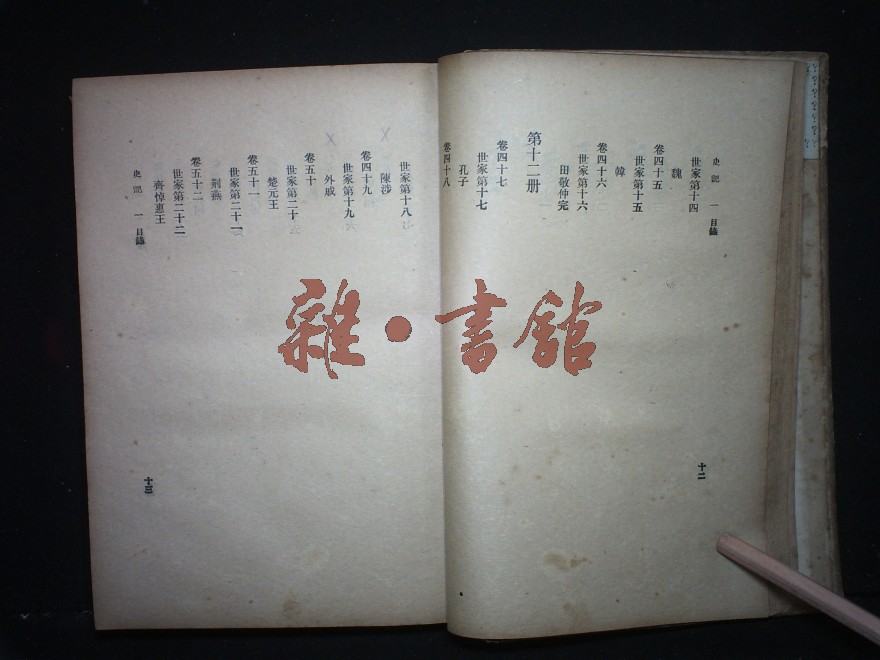 史記 一 目錄
世家第十四
魏
卷四十五
世家第十五
韓
卷四十六
世家第十六
田敬仲完
第十二册
卷四十七
世家第十七
孔子
卷四十八
十二
世家第十八
陳涉
卷四十九
世家第十九
外戚
卷五十
世家第二十
楚元王
卷五十一
世家第二十一
荆燕
卷五十二
世家第二十二
齊悼惠王
史記 一 目錄
十三
雜·書館